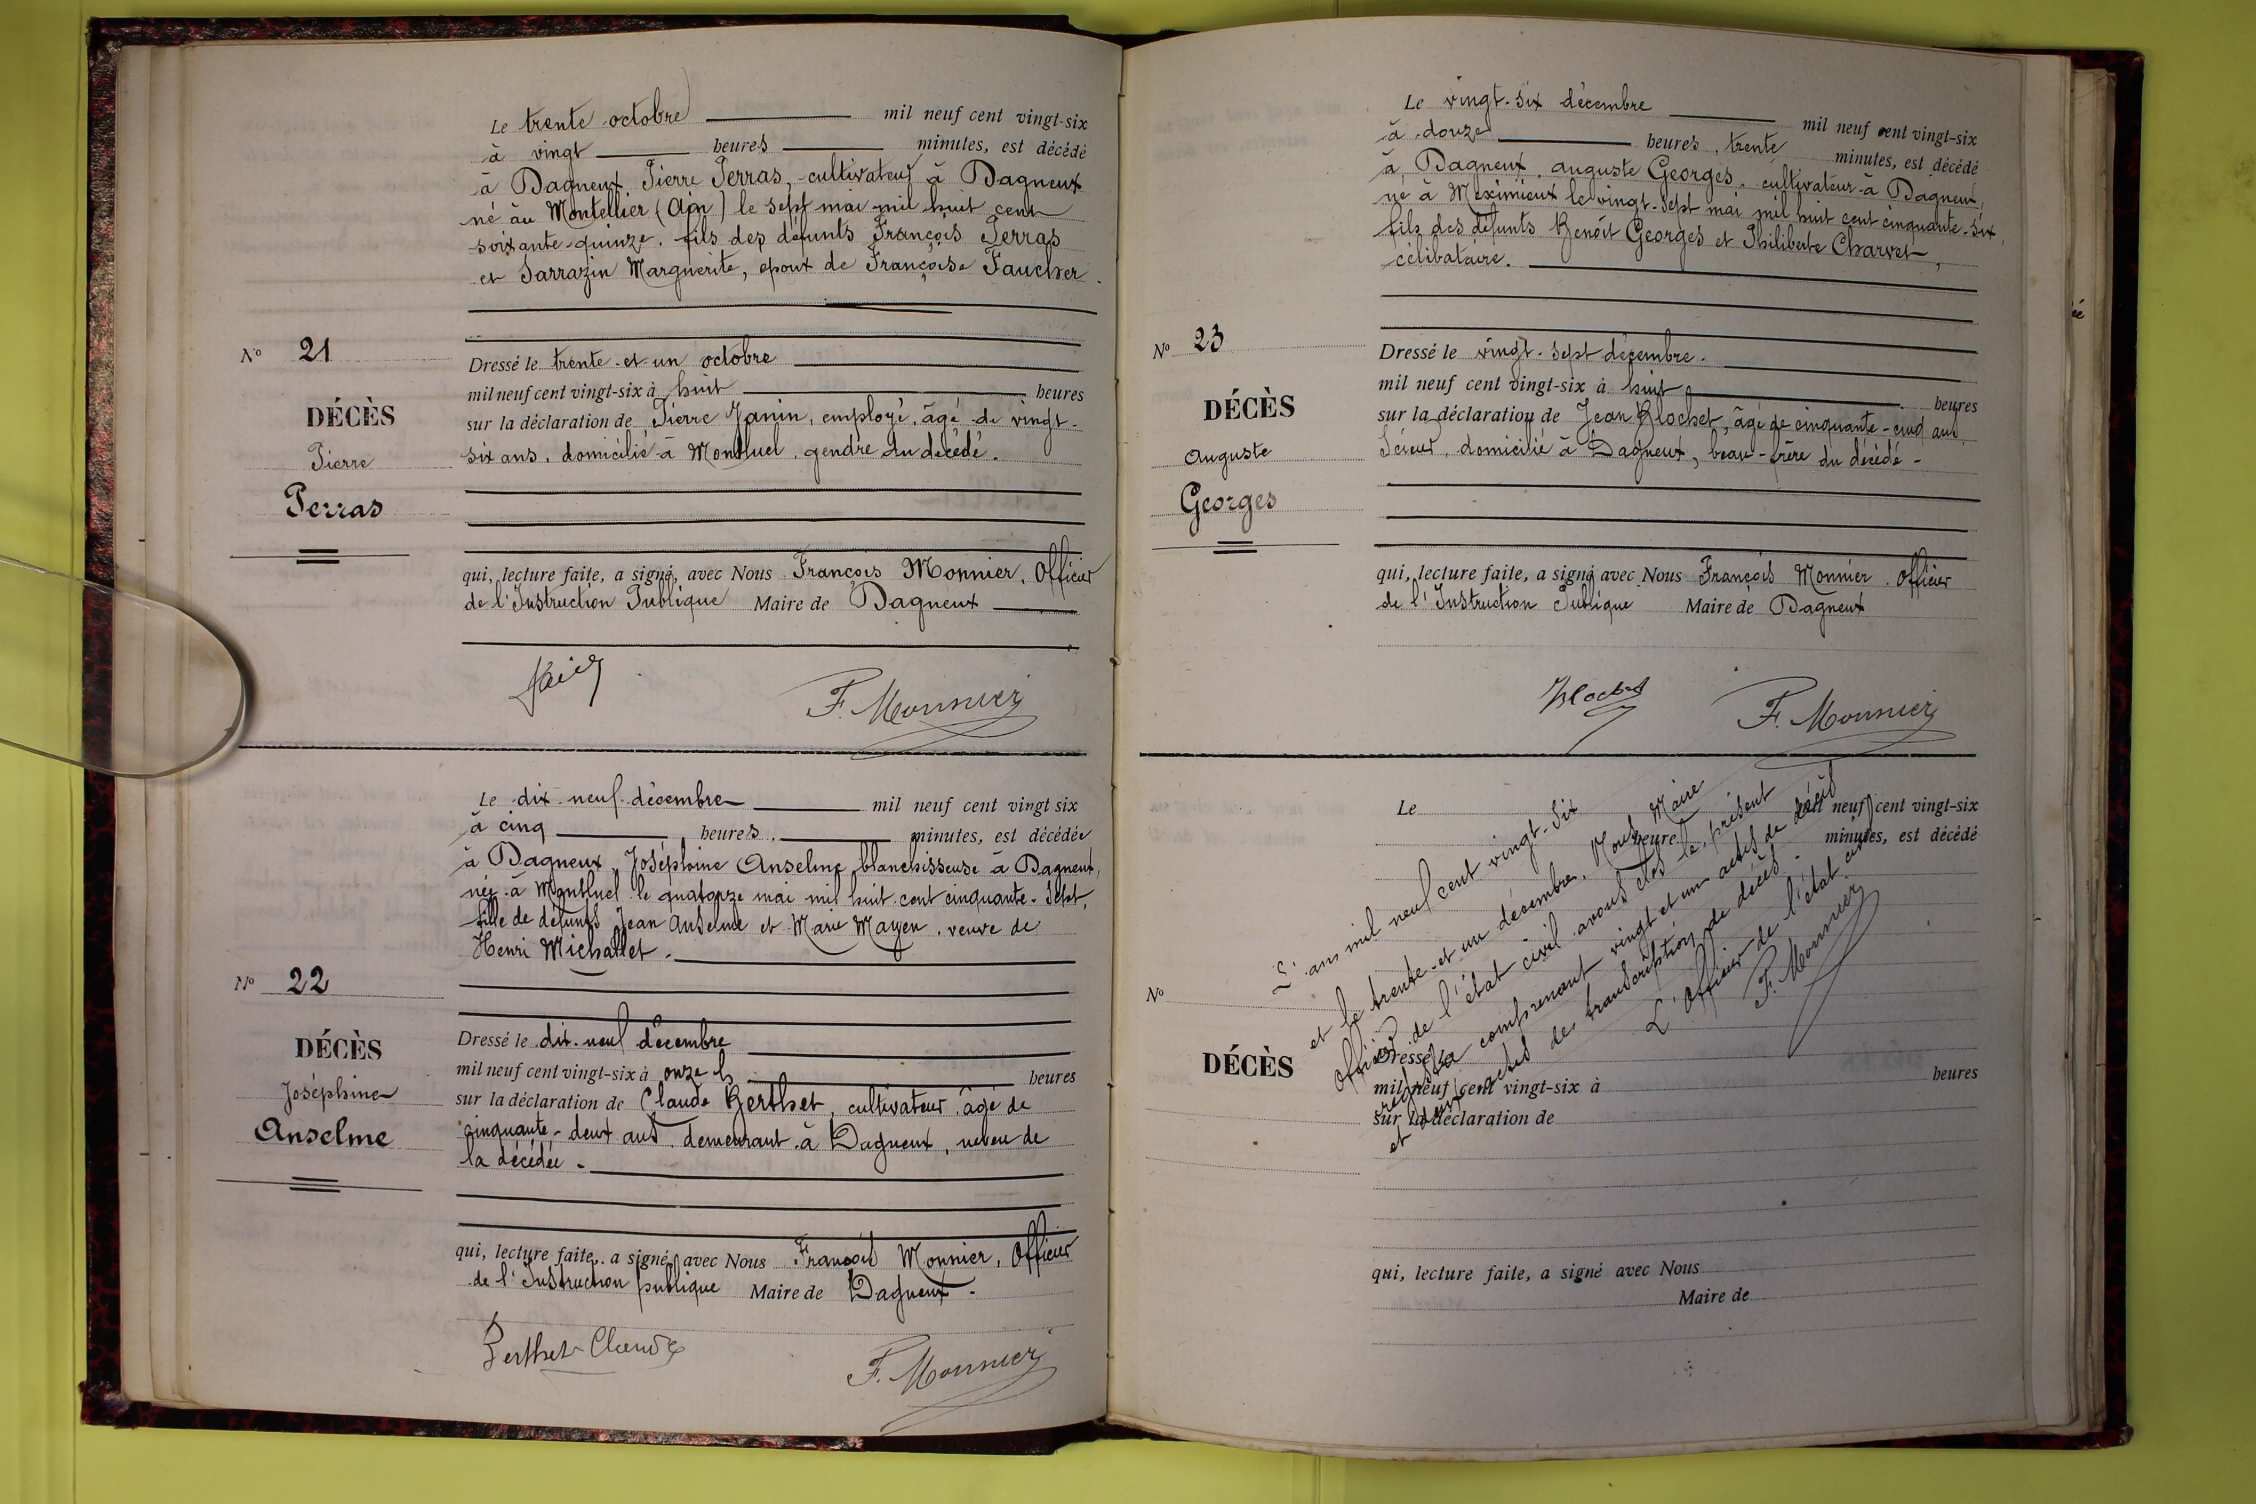 Le trente octobre mil neuf cent vingt-six
à vingt heures minutes, est décédé
à Dagneux, Pierre Perras, cultivateur à Dagneux
né au Montellier (Ain) le sept mai mil huit cent
soixante-quinze. fils des défunts François Perras
et Sarrazin Marguerite, époux de Françoise Faucher.
No 21
DÉCÈS
Pierre
Perras
Dressé le trente et un octobre
mil neuf cent vingt-six à huit heures
sur la déclaration de Pierre Janin, employé, âgé de vingt-
six ans, domicilié à Montluel, gendre du décédé.
qui, lecture faite, a signé, avec Nous François Monnier, Officier
de l'Instruction Publique Maire de Dagneux
F. Monnier
Le dix-neuf décembre mil neuf cent vingt six
à cinq heures, minutes, est décédée
à Dagneux, Joséphine Anselme, blanchisseuse à Dagneux,
née à Montluel le quatorze mai mil huit cent cinquante-sept,
fille de défunts Jean Anselme et Marie Mayen, veuve de
Henri Michallet.
No 22
DÉCÈS
Joséphine
Anselme
Dressé le dix-neuf décembre
mil neuf cent vingt-six à onze h heures
sur la déclaration de Claude Berthet, cultivateur, âgé de
cinquante-deux ans, demeurant à Dagneux, neveu de
la décédée.
qui, lecture faite, a signé, avec Nous François Monnier, Officier
de l'Instruction publique Maire de Dagneux.
Berthet Claude
F. Monnier
Le vingt-six décembre mil neuf cent vingt-six
à douze heures, trente minutes, est décédé
à Dagneux, auguste Georges, cultivateur à Dagneux,
né à Meximieux le vingt-sept mai mil huit cent cinquante-six,
fils des défunts Benoît Georges et Philiberte Charvet,
célibataire.
No 23
DÉCÈS
auguste
Georges
Dressé le vingt-sept décembre.
mil neuf cent vingt-six à huit heures
sur la déclaration de Jean Blochet, âgé de cinquante-cinq ans,
Scieur, domicilié à Dagneux, beau-frère du décédé.
qui, lecture faite, a signé avec Nous François Monnier, Officier
de l'Instruction Publique Maire de Dagneux
Blochet
F. Monnier
Le mil neuf cent vingt-six
heure minutes, est décédé
No
DÉCÈS
Dressé le
mil neuf cent vingt-six à heures
sur la déclaration de
qui, lecture faite, a signé avec Nous
Maire de
L'an mil neuf cent vingt-six
et le trente et un décembre, Nous Maire
officier de l'état civil avons clos le présent
registre comprenant vingt et un actes de décès
et deux actes de transcription de décès.
L'Officier de l'état civil
F. Monnier